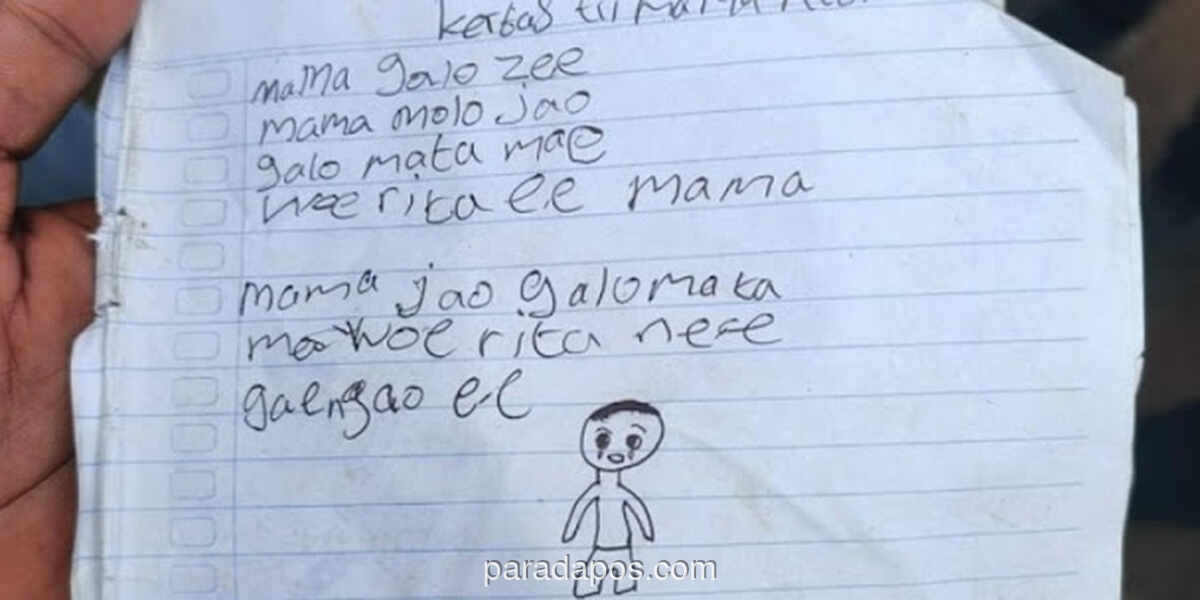 kertas tii mama
mama galo zee
mama molo jao
galo mata mae
woe rita ee mama
mama jao galo mata
mae woe rita ne ee
gaengao ee
paradapos.com